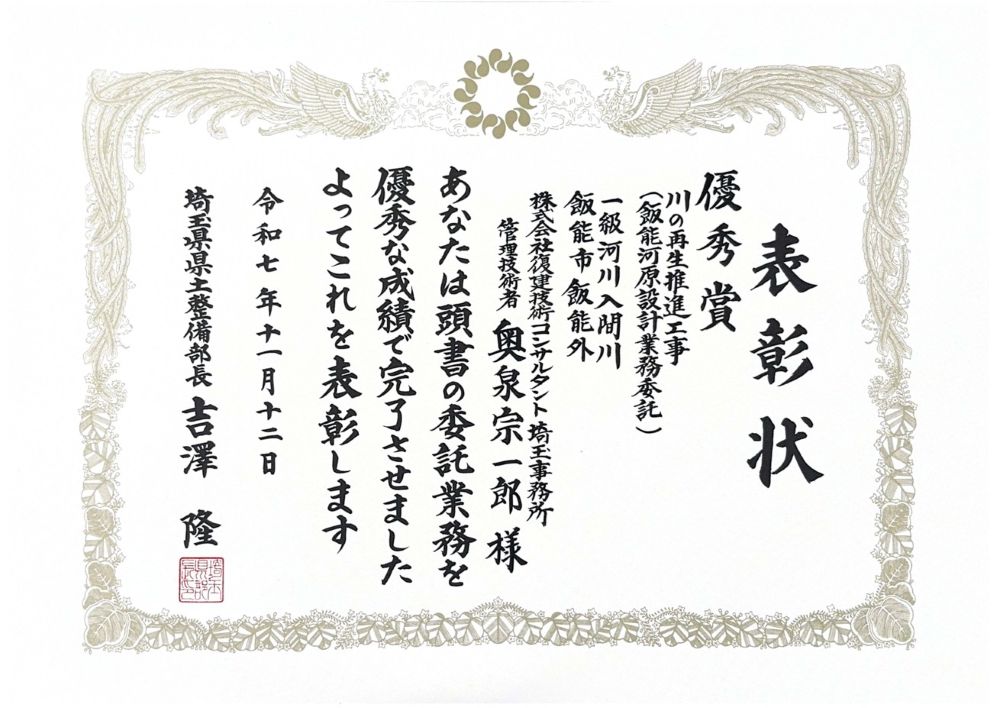 表彰状
優秀賞
川の再生推進工事
(飯能河原設計業務委託)
一級河川入間川
飯能市飯能外
株式会社復建技術コンサルタント 埼玉事務所
管理技術者 奥泉宗一郎 様
あなたは頭書の委託業務を
優秀な成績で完了させました
よってこれを表彰します
令和七年十一月十二日
埼玉県県土整備部長 吉澤 隆